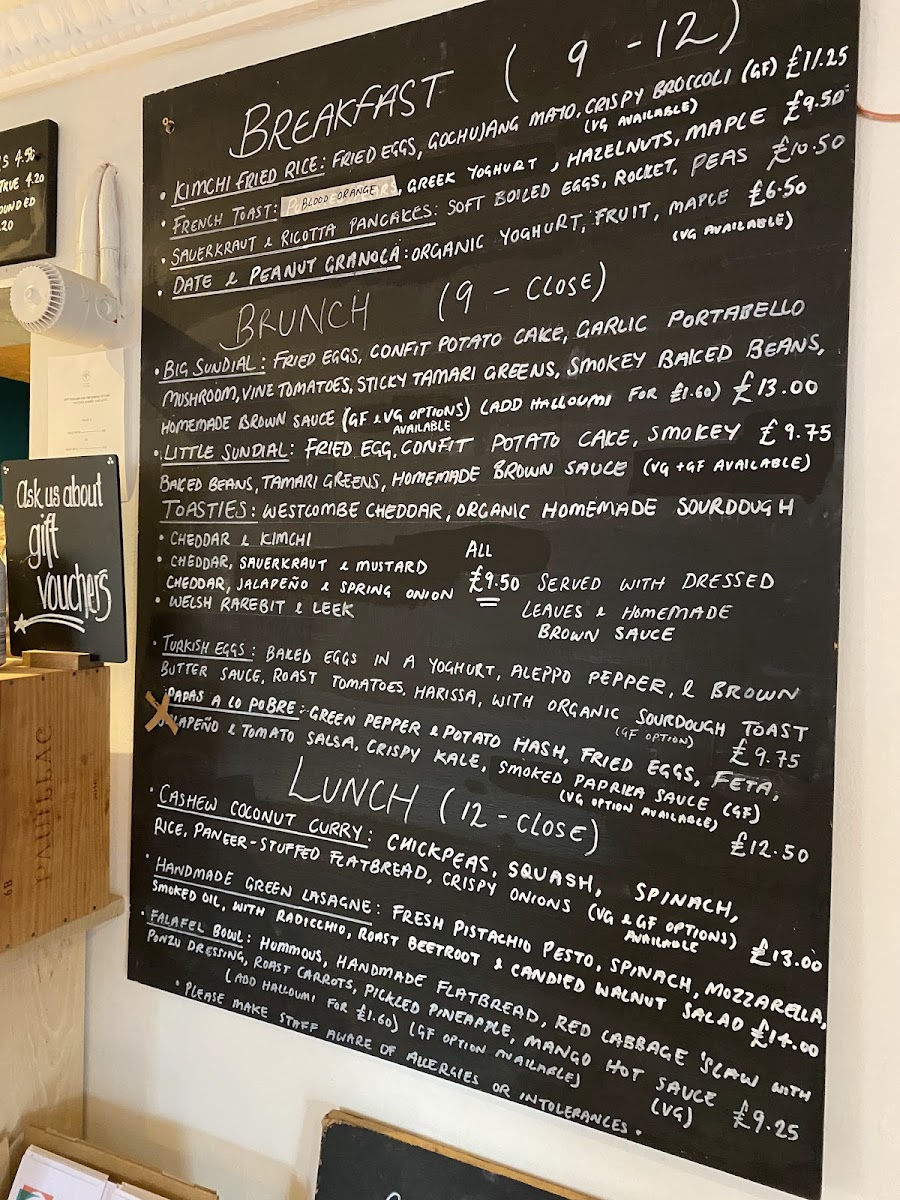 BREAKFAST (9-12)
• KIMCHI FRIED RICE: FRIED EGGS, GOCHUJANG MAYO, CRISPY BROCCOLI (GF) £11.25
(VG AVAILABLE)
• FRENCH TOAST: BLOOD ORANGE, GREEK YOGHURT, HAZELNUTS, MAPLE £9.50
• SAUERKRAUT & RICOTTA PANCAKES: SOFT BOILED EGGS, ROCKET, PEAS £10.50
• DATE & PEANUT GRANOLA: ORGANIC YOGHURT, FRUIT, MAPLE £6.50
(VG AVAILABLE)
BRUNCH (9 - CLOSE)
• BIG SUNDIAL: FRIED EGGS, CONFIT POTATO CAKE, GARLIC PORTABELLO
MUSHROOM, VINE TOMATOES, STICKY TAMARI GREENS, SMOKEY BAKED BEANS,
HOMEMADE BROWN SAUCE (GF & VG OPTIONS AVAILABLE) (ADD HALLOUMI FOR £1.60) £13.00
• LITTLE SUNDIAL: FRIED EGG, CONFIT POTATO CAKE, SMOKEY £9.75
BAKED BEANS, TAMARI GREENS, HOMEMADE BROWN SAUCE (VG + GF AVAILABLE)
TOASTIES: WESTCOMBE CHEDDAR, ORGANIC HOMEMADE SOURDOUGH
• CHEDDAR & KIMCHI
• CHEDDAR, SAUERKRAUT & MUSTARD
CHEDDAR, JALAPEÑO & SPRING ONION
• WELSH RAREBIT & LEEK
ALL
£9.50 SERVED WITH DRESSED
LEAVES & HOMEMADE
BROWN SAUCE
• TURKISH EGGS: BAKED EGGS IN A YOGHURT, ALEPPO PEPPER, & BROWN
BUTTER SAUCE, ROAST TOMATOES, HARISSA, WITH ORGANIC SOURDOUGH TOAST
(GF OPTION) £9.75
PAPAS A LO POBRE: GREEN PEPPER & POTATO HASH, FRIED EGGS, FETA,
JALAPEÑO & TOMATO SALSA, CRISPY KALE, SMOKED PAPRIKA SAUCE (GF)
(VG OPTION AVAILABLE) £12.50
LUNCH (12 - CLOSE)
• CASHEW COCONUT CURRY: CHICKPEAS, SQUASH, SPINACH,
RICE, PANEER-STUFFED FLATBREAD, CRISPY ONIONS (VG & GF OPTIONS AVAILABLE) £13.00
• HANDMADE GREEN LASAGNE: FRESH PISTACHIO PESTO, SPINACH, MOZZARELLA,
SMOKED OIL, WITH RADICCHIO, ROAST BEETROOT & CANDIED WALNUT SALAD £14.00
• FALAFEL BOWL: HUMMOUS, HANDMADE FLATBREAD, RED CABBAGE 'SLAW WITH
PONZU DRESSING, ROAST CARROTS, PICKLED PINEAPPLE, MANGO HOT SAUCE
(ADD HALLOUMI FOR £1.60) (GF OPTION AVAILABLE) (VG) £9.25
• PLEASE MAKE STAFF AWARE OF ALLERGIES OR INTOLERANCES.
4.50
4.20
Ask us about
gift
vouchers
PAUILLAC